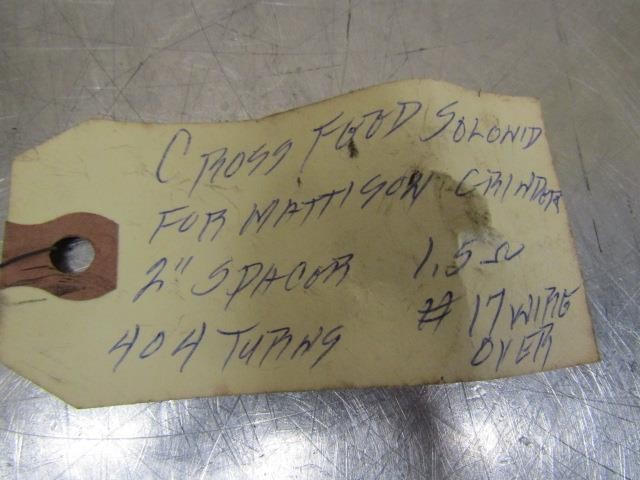 CROSS FEED SOLONID
FOR MATTISON GRINDER
2" SPACER 1.5 Ω
404 TURNS # 17 WIRE
OVER